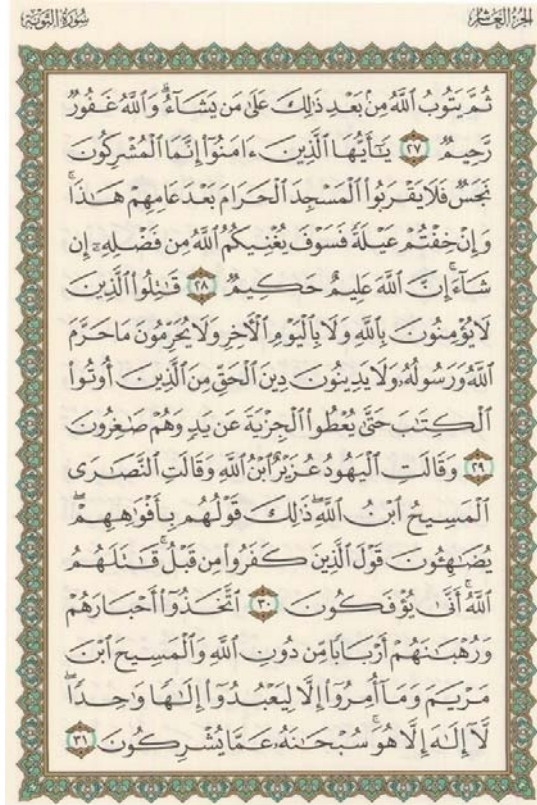 سُورَةُ التَّوْبَةِ
الجُزْءُ العَاشِرُ
ثُمَّ يَتُوبُ ٱللَّهُ مِنۢ بَعْدِ ذَٰلِكَ عَلَىٰ مَن يَشَآءُۗ وَٱللَّهُ غَفُورٌ
رَّحِيمٌ ٢٧ يَٰٓأَيُّهَا ٱلَّذِينَ ءَامَنُوٓا۟ إِنَّمَا ٱلْمُشْرِكُونَ
نَجَسٌ فَلَا يَقْرَبُوا۟ ٱلْمَسْجِدَ ٱلْحَرَامَ بَعْدَ عَامِهِمْ هَٰذَاۚ
وَإِنْ خِفْتُمْ عَيْلَةً فَسَوْفَ يُغْنِيكُمُ ٱللَّهُ مِن فَضْلِهِۦٓ إِن
شَآءَۚ إِنَّ ٱللَّهَ عَلِيمٌ حَكِيمٌ ٢٨ قَٰتِلُوا۟ ٱلَّذِينَ
لَا يُؤْمِنُونَ بِٱللَّهِ وَلَا بِٱلْيَوْمِ ٱلْءَاخِرِ وَلَا يُحَرِّمُونَ مَا حَرَّمَ
ٱللَّهُ وَرَسُولُهُۥ وَلَا يَدِينُونَ دِينَ ٱلْحَقِّ مِنَ ٱلَّذِينَ أُوتُوا۟
ٱلْكِتَٰبَ حَتَّىٰ يُعْطُوا۟ ٱلْجِزْيَةَ عَن يَدٍ وَهُمْ صَٰغِرُونَ
٢٩ وَقَالَتِ ٱلْيَهُودُ عُزَيْرٌ ٱبْنُ ٱللَّهِ وَقَالَتِ ٱلنَّصَٰرَى
ٱلْمَسِيحُ ٱبْنُ ٱللَّهِۖ ذَٰلِكَ قَوْلُهُم بِأَفْوَٰهِهِمْۖ
يُضَٰهِـُٔونَ قَوْلَ ٱلَّذِينَ كَفَرُوا۟ مِن قَبْلُۚ قَٰتَلَهُمُ
ٱللَّهُۚ أَنَّىٰ يُؤْفَكُونَ ٣٠ ٱتَّخَذُوٓا۟ أَحْبَارَهُمْ
وَرُهْبَٰنَهُمْ أَرْبَابًا مِّن دُونِ ٱللَّهِ وَٱلْمَسِيحَ ٱبْنَ
مَرْيَمَ وَمَآ أُمِرُوٓا۟ إِلَّا لِيَعْبُدُوٓا۟ إِلَٰهًا وَٰحِدًاۖ
لَّآ إِلَٰهَ إِلَّا هُوَۚ سُبْحَٰنَهُۥ عَمَّا يُشْرِكُونَ ٣١